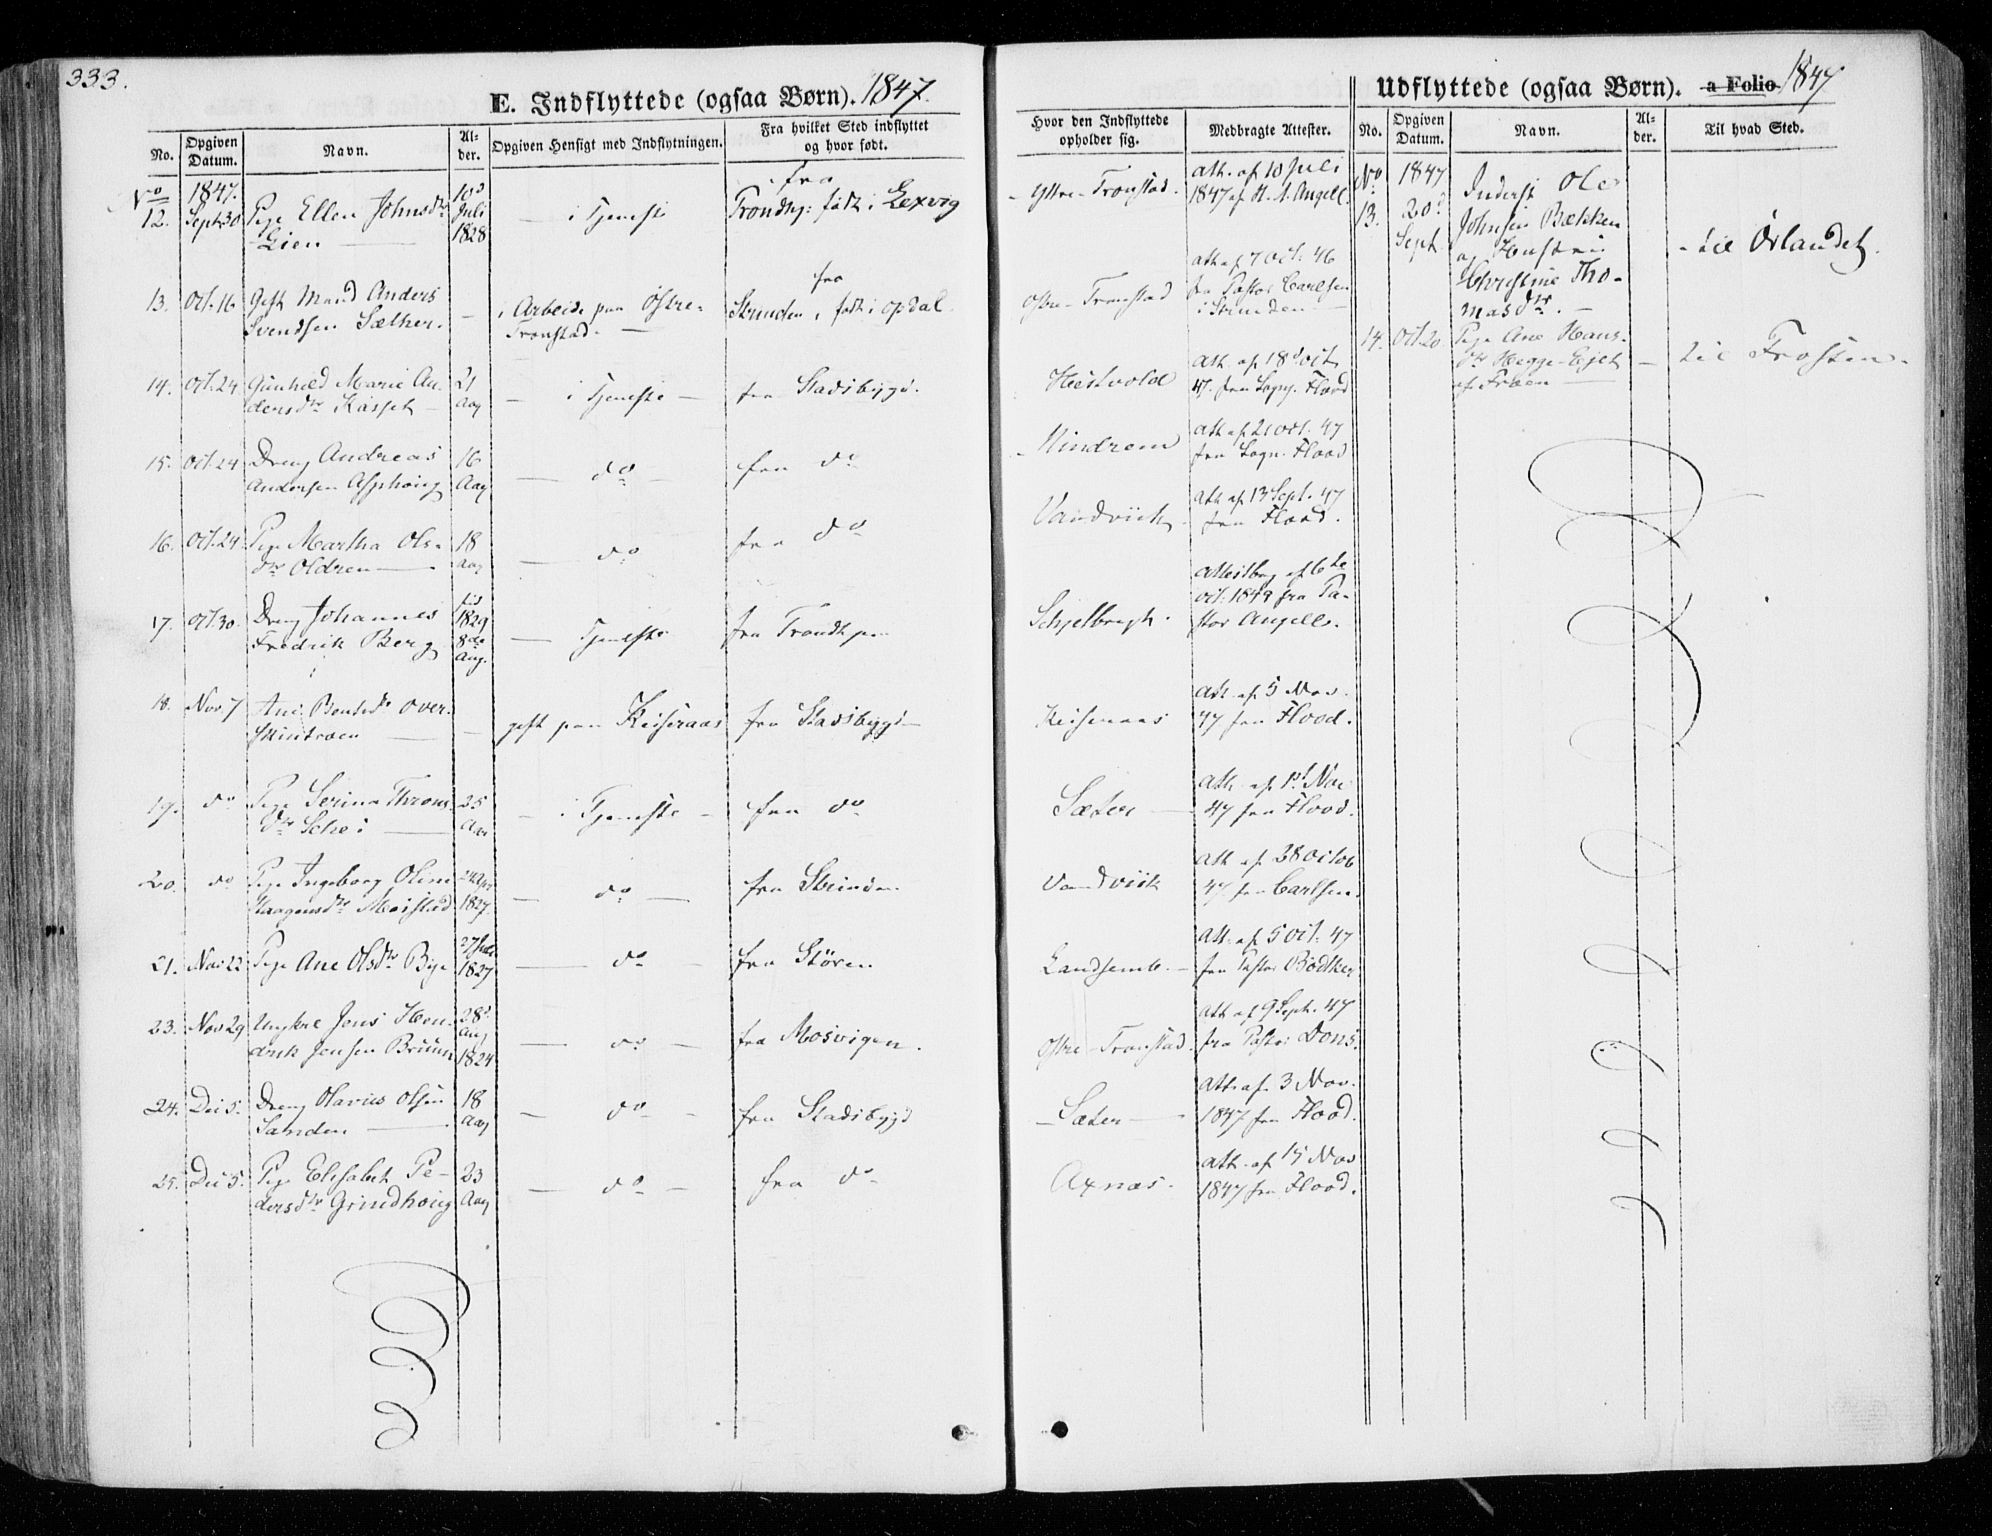 333.
E. Indflyttede (ogsaa Børn). 1847.
No.
Opgiven Datum.
Navn.
Al-der.
Opgiven Hensigt med Indflytningen.
Fra hvilket Sted indflyttet og hvor født.
No 1847.
12. Sept. 30 Pige Ellen Johnsdtr 10d Juli 1828 — i Tjeneste fra Trondhj: født i Lexvig
Lien
13. Oct. 16 Gift Mand Anders — i Arbeide paa Østre- fra Strinden, født i Opdal
Svendsen Sæther. Tronstad.
14. Oct. 24 Gunhild Marie An- 21 — i Tjeneste — fra Stadsbygd.
dersdtr Kasset Aar
15. Oct. 24 Dreng Andreas 16 — do — fra do
Andersen Asphoug Aar
16. Oct. 24 Pige Martha Ols- 18 — do fra do
dtr Oldren Aar
17. Oct. 30 Dreng Johannes 1829 — Tjeneste fra Trondhjem
Fredrik Berg 8de Aug.
18. Nov. 7 Ane Bentsdtr Over- — gift paa Keiseraas fra Stadsbygd
19. do Pige Serina Throns- 25 — i Tjeneste — fra do
dtr Schei Aar
20. do Pige Ingeborg Oline 24 Apr — do — fra Strinden
Haagensdtr Moistad 1827.
21. Nov 22 Pige Ane Olsdtr Bye 1827 — do — fra Støren
23. Nov 29 Ungkrl Jens Hen- 28d Aug — do — fra Mosvigen.
drik Jensen Bruun 1824
24. Dec 5. Dreng Olavus Olsen 18 — do — fra Stadsbygd
Sanden Aar
25. Dec 5. Pige Elisabet Pe- 23 — do — fra do
dersdtr Grindhoug Aar
Hvor den Indflyttede opholder sig.
Medbragte Attester.
Yttre-Tronstad. Att. af 10 Juli
1847 af H. A. Angell.
Østre-Tronstad Att. af 7 Oct. 46
fra Pastor Carlsen
i Strinden
Hestvold Att. af 18d Oct
47. fra Sogn. Flood
Mindrem Att. af 21 Oct. 47
fra Sogn. Flood
Vandviik Att. af 13 Sept. 47
fra Flood.
Schjelbreyt. af 6te
Oct. 1849 fra Pa-
stor Angell.
Keiseraas Att. af 5 Nov.
47 fra Flood.
Sæter Att. af 1st Nov
47 fra Flood.
Vandviik Att. af 28 Octob
47 fra Carlsen.
Landsemb. Att. af 5 Oct. 47
fra Pastor Bødtker
Østre-Tronstad. Att. af 9 Sept. 47
fra Pastor Dons.
Sæter Att. af 3 Nov.
1847 fra Flood.
Axnæs. Att. af 15 Nov
1847 fra Flood.
Udflyttede (ogsaa Børn). a Folio 1847
No.
Opgiven Datum.
Navn.
Al-der.
Til hvad Sted.
No 1847
13. 20d Sept Inderst Ole
Johnsen Bækken
og Hustrue — til Ørlandet.
Christine Tho-
masdtr. —
14. Oct. 20. Pige Ane Hans- — til Frosten.
dtr Hegge-Ejet
af Fraen